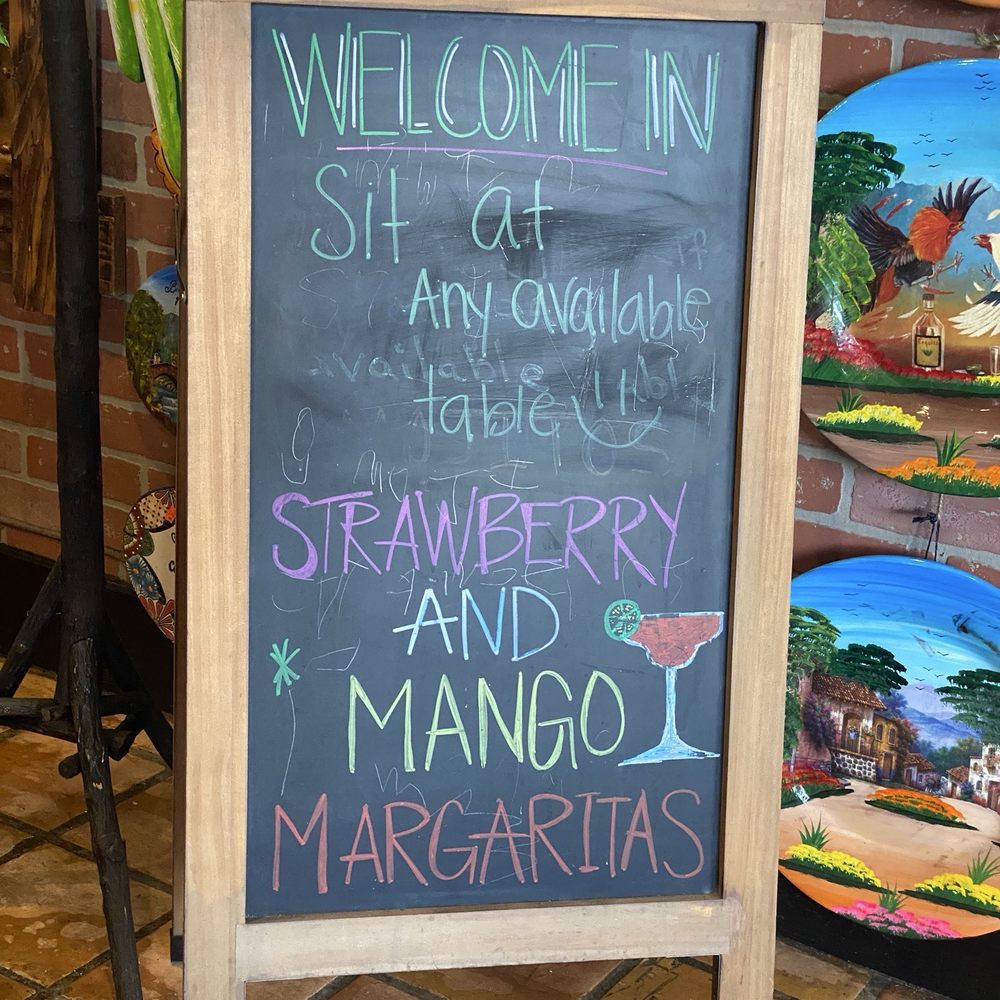 WELCOME IN
Sit at
Any available
table
STRAWBERRY
AND
MANGO
MARGARITAS